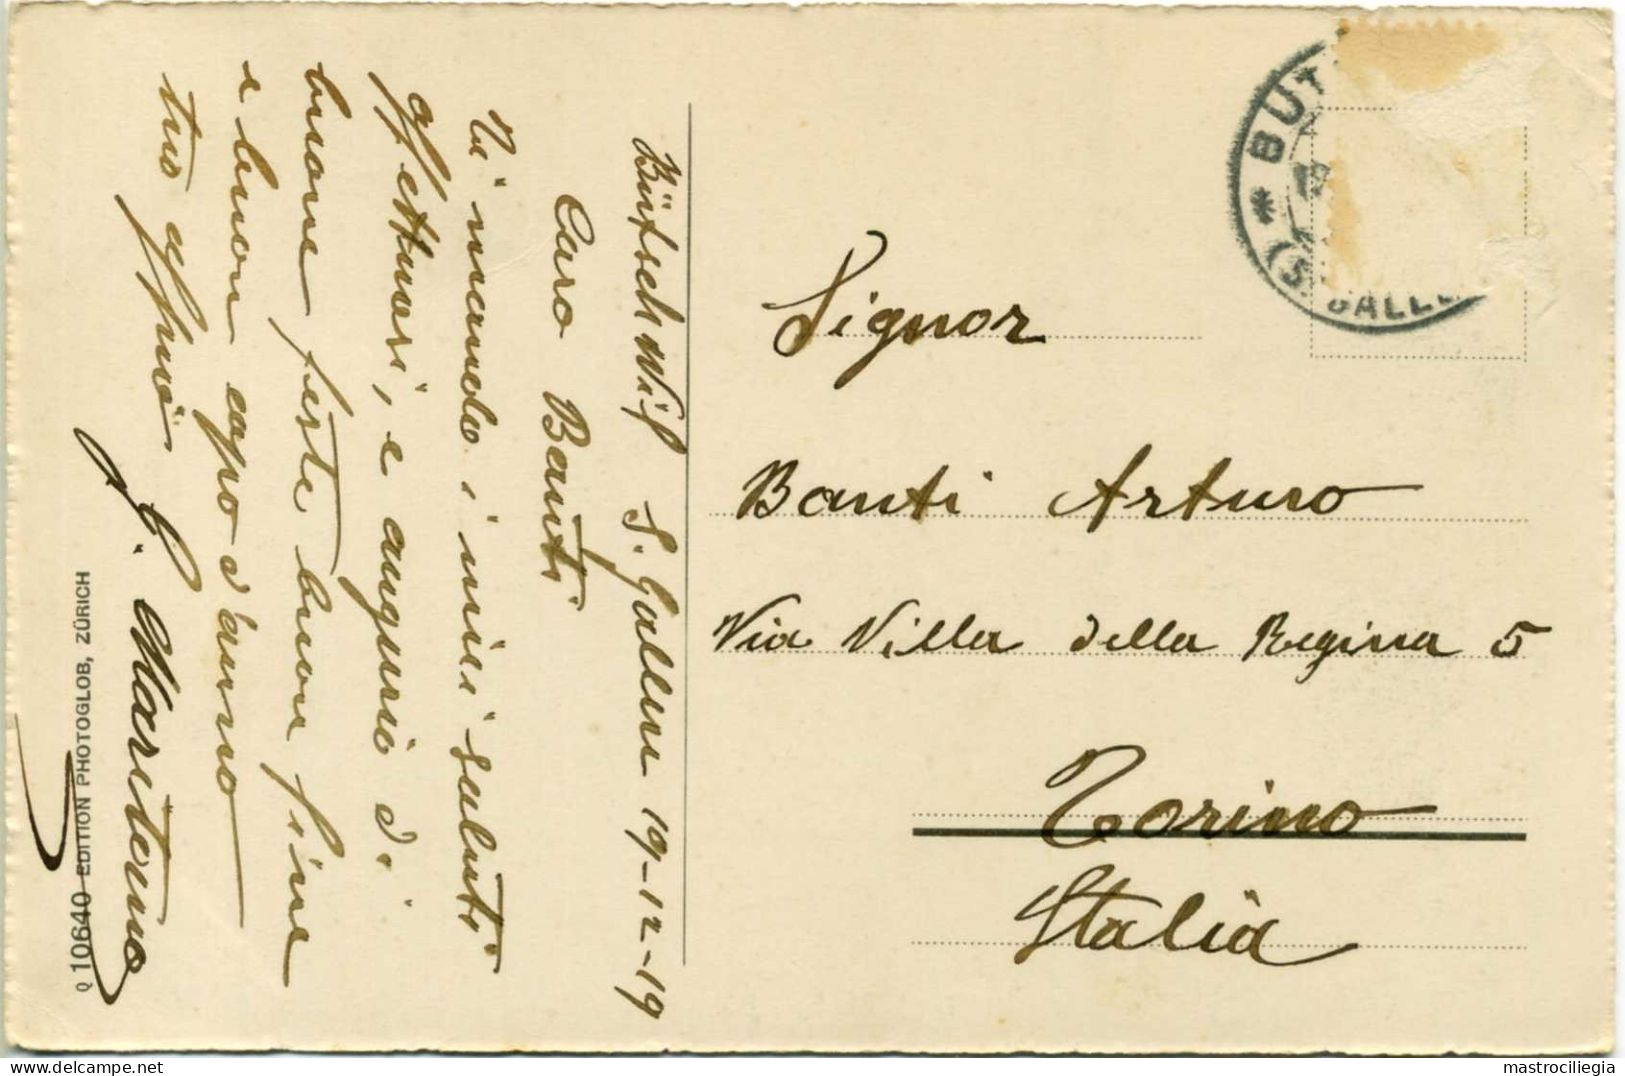 Bütschwil S. Gallen 19-12-19
Caro Banti
Ti mando i miei saluti
affettuosi, e augurio di
buone feste buon fine
e buon capo d'anno
tuo affmo
Martorno
Q 10640 EDITION PHOTOGLOB, ZÜRICH
BUT
(S. GALLE
Signor
Banti Arturo
Via Villa della Regina 5
Torino
Italia
mastrociliegia